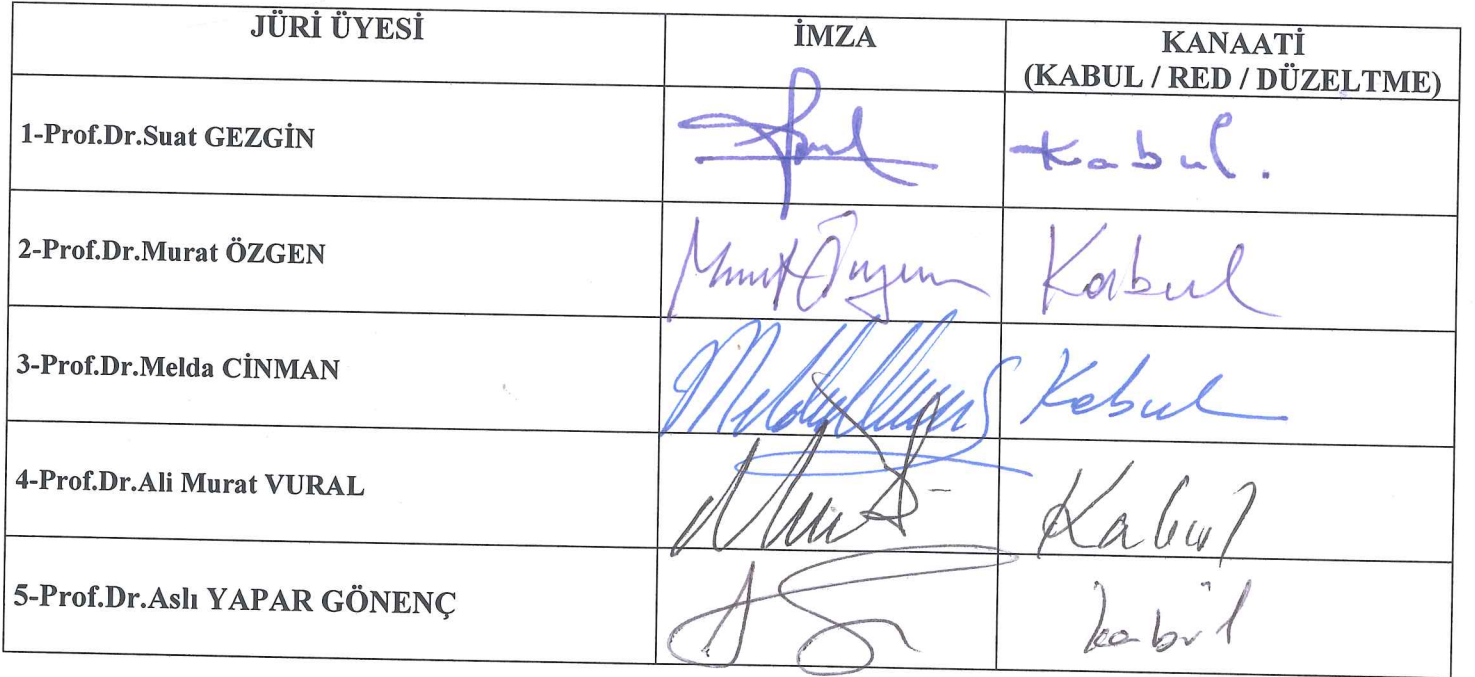 JÜRİ ÜYESİ İMZA KANAATİ
(KABUL / RED / DÜZELTME)
1-Prof.Dr.Suat GEZGİN Kabul.
2-Prof.Dr.Murat ÖZGEN Kabul
3-Prof.Dr.Melda CİNMAN Kabul
4-Prof.Dr.Ali Murat VURAL Kabul
5-Prof.Dr.Aslı YAPAR GÖNENÇ kabül